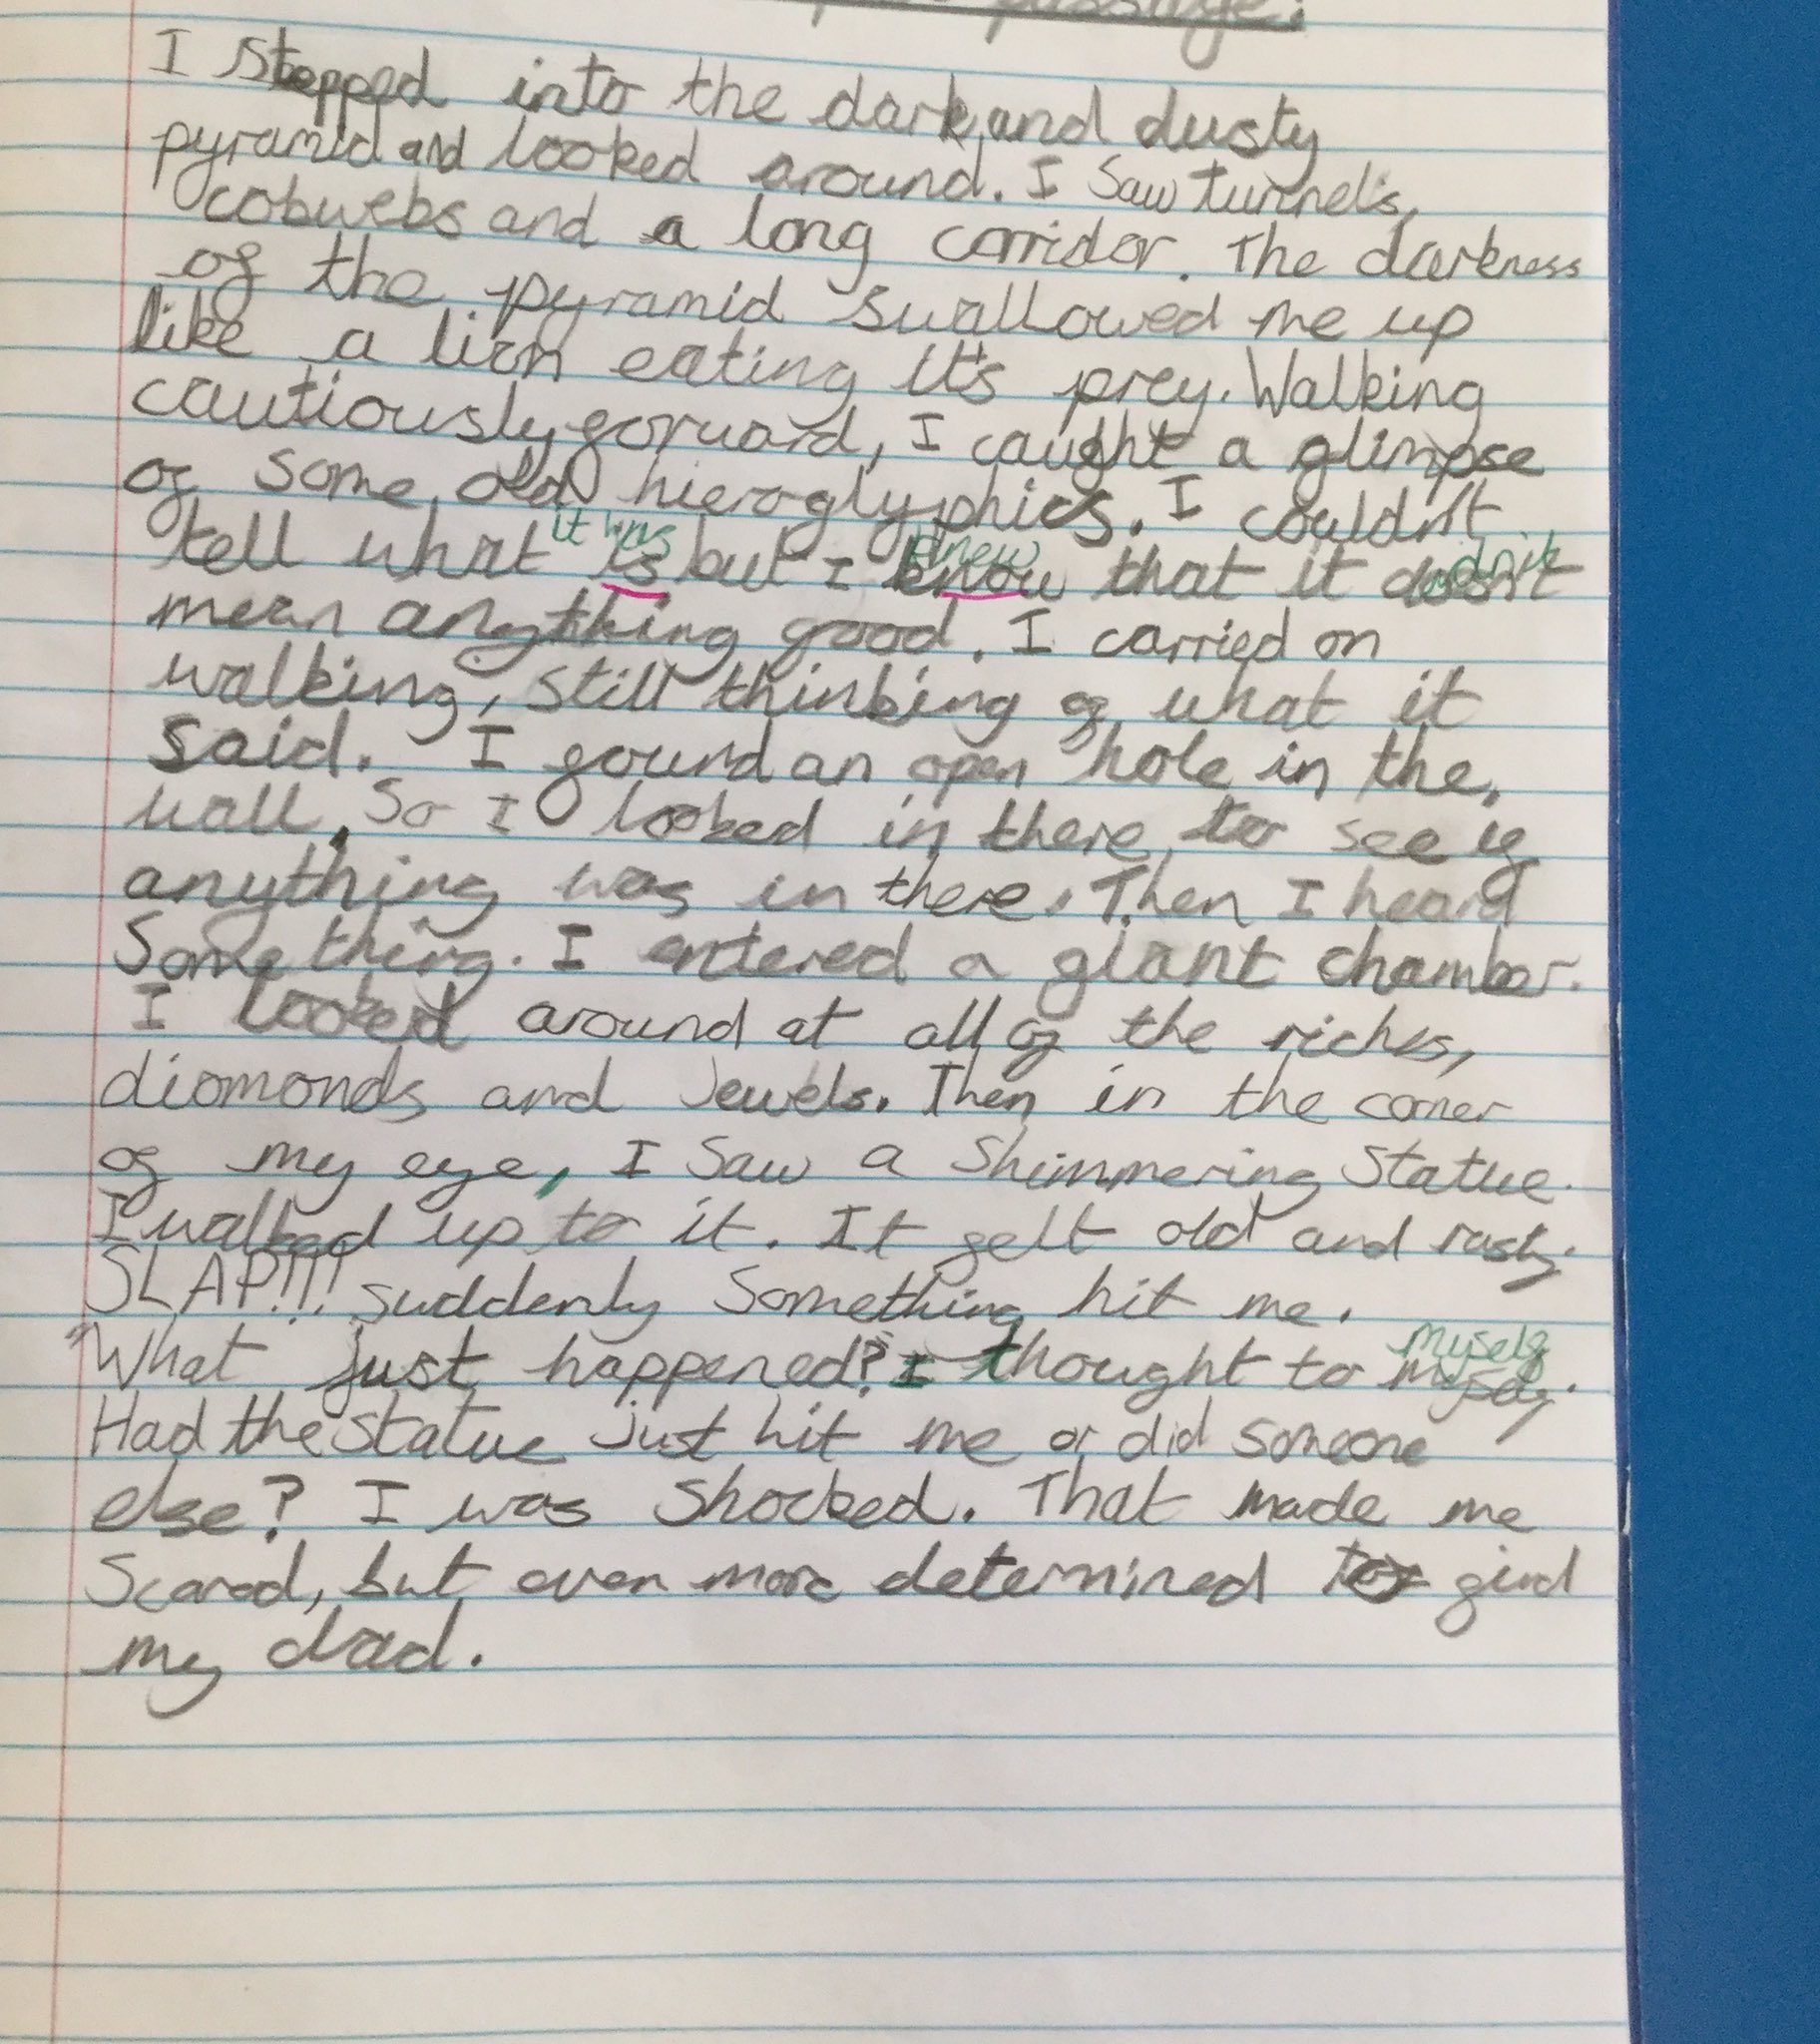 passage:
I stepped into the dark and dusty
pyramid and looked around. I saw tunnels,
cobwebs and a long corridor. The darkness
of the pyramid swallowed me up
like a lion eating it's prey. Walking
cautiously forward, I caught a glimpse
of some old hieroglyphics. I couldn't
it was knew
tell what is but I know that it doesn't
mean anything good. I carried on
walking, still thinking of what it
said. I found an open hole in the
wall. So I looked in there to see if
anything was in there. Then I heard
Something. I entered a giant chamber.
I looked around at all of the riches,
diomonds and Jewels. Then in the corner
of my eye, I saw a shimmering statue.
I walked up to it. It felt old and rusty.
SLAP!!! suddenly something hit me.
myself
"What just happened?" I thought to myself.
Had the statue just hit me or did someone
else? I was shocked. That made me
Scared, but even more determined to find
my dad.